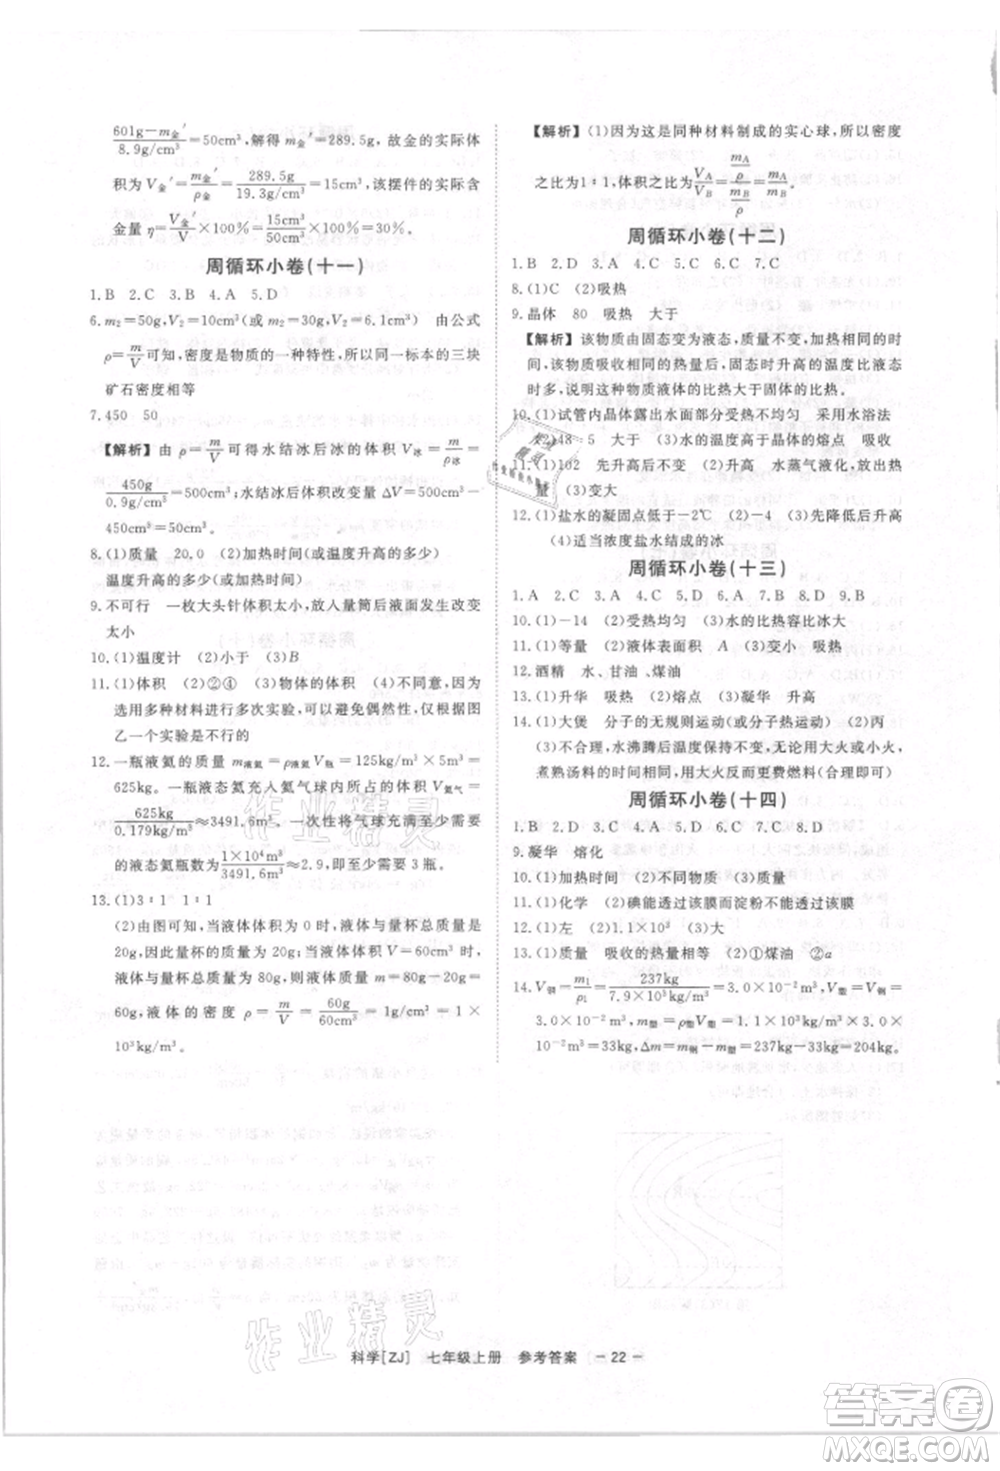 $\frac{601g-m_{金}'}{8.9g/cm^3}$=50cm³,解得m金′=289.5g,故金的实际体
积为V金′=$\frac{m_{金}'}{ρ_{金}}$=$\frac{289.5g}{19.3g/cm^3}$=15cm³,该摆件的实际含
金量η=$\frac{V_{金}'}{V}$×100%=$\frac{15cm^3}{50cm^3}$×100%=30%。
周循环小卷(十一)
1. B 2. C 3. B 4. A 5. D
6. m₂=50g,V₂=10cm³(或m₂=30g,V₂=6.1cm³) 由公式
ρ=$\frac{m}{V}$可知,密度是物质的一种特性,所以同一标本的三块
矿石密度相等
7. 450 50
【解析】由ρ=$\frac{m}{V}$可得水结冰后冰的体积V冰=$\frac{m}{ρ_{冰}}$=
$\frac{450g}{0.9g/cm^3}$=500cm³;水结冰后体积改变量ΔV=500cm³-
450cm³=50cm³。
8. (1)质量 20.0 (2)加热时间(或温度升高的多少)
温度升高的多少(或加热时间)
9. 不可行 一枚大头针体积太小,放入量筒后液面发生改变
太小
10. (1)温度计 (2)小于 (3)B
11. (1)体积 (2)②④ (3)物体的体积 (4)不同意,因为
选用多种材料进行多次实验,可以避免偶然性,仅根据图
乙一个实验是不行的
12. 一瓶液氦的质量m液氦=ρ液氦V瓶=125kg/m³×5m³=
625kg。一瓶液态氦充入氦气球内所占的体积V氦气=
$\frac{625kg}{0.179kg/m^3}$≈3491.6m³。一次性将气球充满至少需要
的液态氦瓶数为$\frac{1×10^4m^3}{3491.6m^3}$≈2.9,即需要3瓶。
13. (1)3∶1 1∶1
(2)由图丙可知,当液体体积为0时,液体与量杯的质量为
20g,故量杯的质量为20g;当液体体积V=60cm³时,
液体与量杯质量为80g,则液体质量m=80g-20g=
60g,液体的密度ρ=$\frac{m}{V}$=$\frac{60g}{60cm^3}$=1g/cm³=1×
10³kg/m³。
【解析】(1)因为这是同种材料制成的实心球,所以密度
之比为1∶1,体积之比为$\frac{V_A}{V_B}$=$\frac{\frac{m_A}{ρ}}{\frac{m_B}{ρ}}$=$\frac{m_A}{m_B}$。
周循环小卷(十二)
1. B 2. D 3. A 4. C 5. C 6. C 7. C
8. (1)C (2)吸热
9. 晶体 80 吸热 大于
【解析】该物质由固态变为液态,质量不变,加热相同的时
间,该物质吸收相同的热量后,固态时升温高于液态时升温
时多,说明这种物质液体的比热大于固体的比热。
10. (1)试管内晶体露出水面部分受热不均匀 采用水浴法
(2)48 5 大于 (3)水的温度高于晶体的熔点 吸收
11. (1)102 先升高后不变 水蒸气液化,放出大量的热
量 (3)变大
12. (1)盐水的凝固点低于-2℃ (2)-4 (3)先降低后升高
(4)适当浓度盐水结成的冰
周循环小卷(十三)
1. C 2. A 3. C 4. B 5. A 6. C 7. B 8. D 9. B
10. (1)不一样 (2)受热均匀 (3)水的比热容比冰大
11. (1)等量 (2)液体表面积 A (3)变小 吸热
12. 酒精 水、甘油、煤油
13. (1)升华 吸热 (2)熔点 (3)凝华 升高
14. (1)大煲 分子的无规则运动(或分子热运动) (2)丙
(3)不合理,水沸腾后温度保持不变,无论用大火或小火,
煮熟汤料的时间一样,用大火反而更费燃料(合理即可)
周循环小卷(十四)
1. B 2. B 3. D 4. A 5. D 6. C 7. C 8. D
9. 凝华 熔化
10. (1)加热时间 (2)不同物质 (3)质量
11. (1)化学 (2)碘能透过该膜而淀粉不能透过该膜
12. (1)左 (2)1.1×10³ (2)大
13. (1)质量 吸收的热量相等 (2)①煤油 ②大
14. V钢=$\frac{m_1}{ρ_1}$=$\frac{237kg}{7.9×10^3kg/m^3}$=3.0×10⁻²m³,V塑=V钢=
3.0×10⁻²m³,m塑=ρ塑V塑=1.1×10³kg/m³×3.0×
10⁻²m³=33kg,Δm=m钢-m塑=237kg-33kg=204kg。
作业精灵
作业精灵
科学[ZJ] 七年级上册 参考答案 －22－
答案卷
MXQE.COM